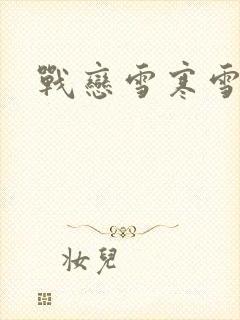 戰戀雪寒雪
妝兒